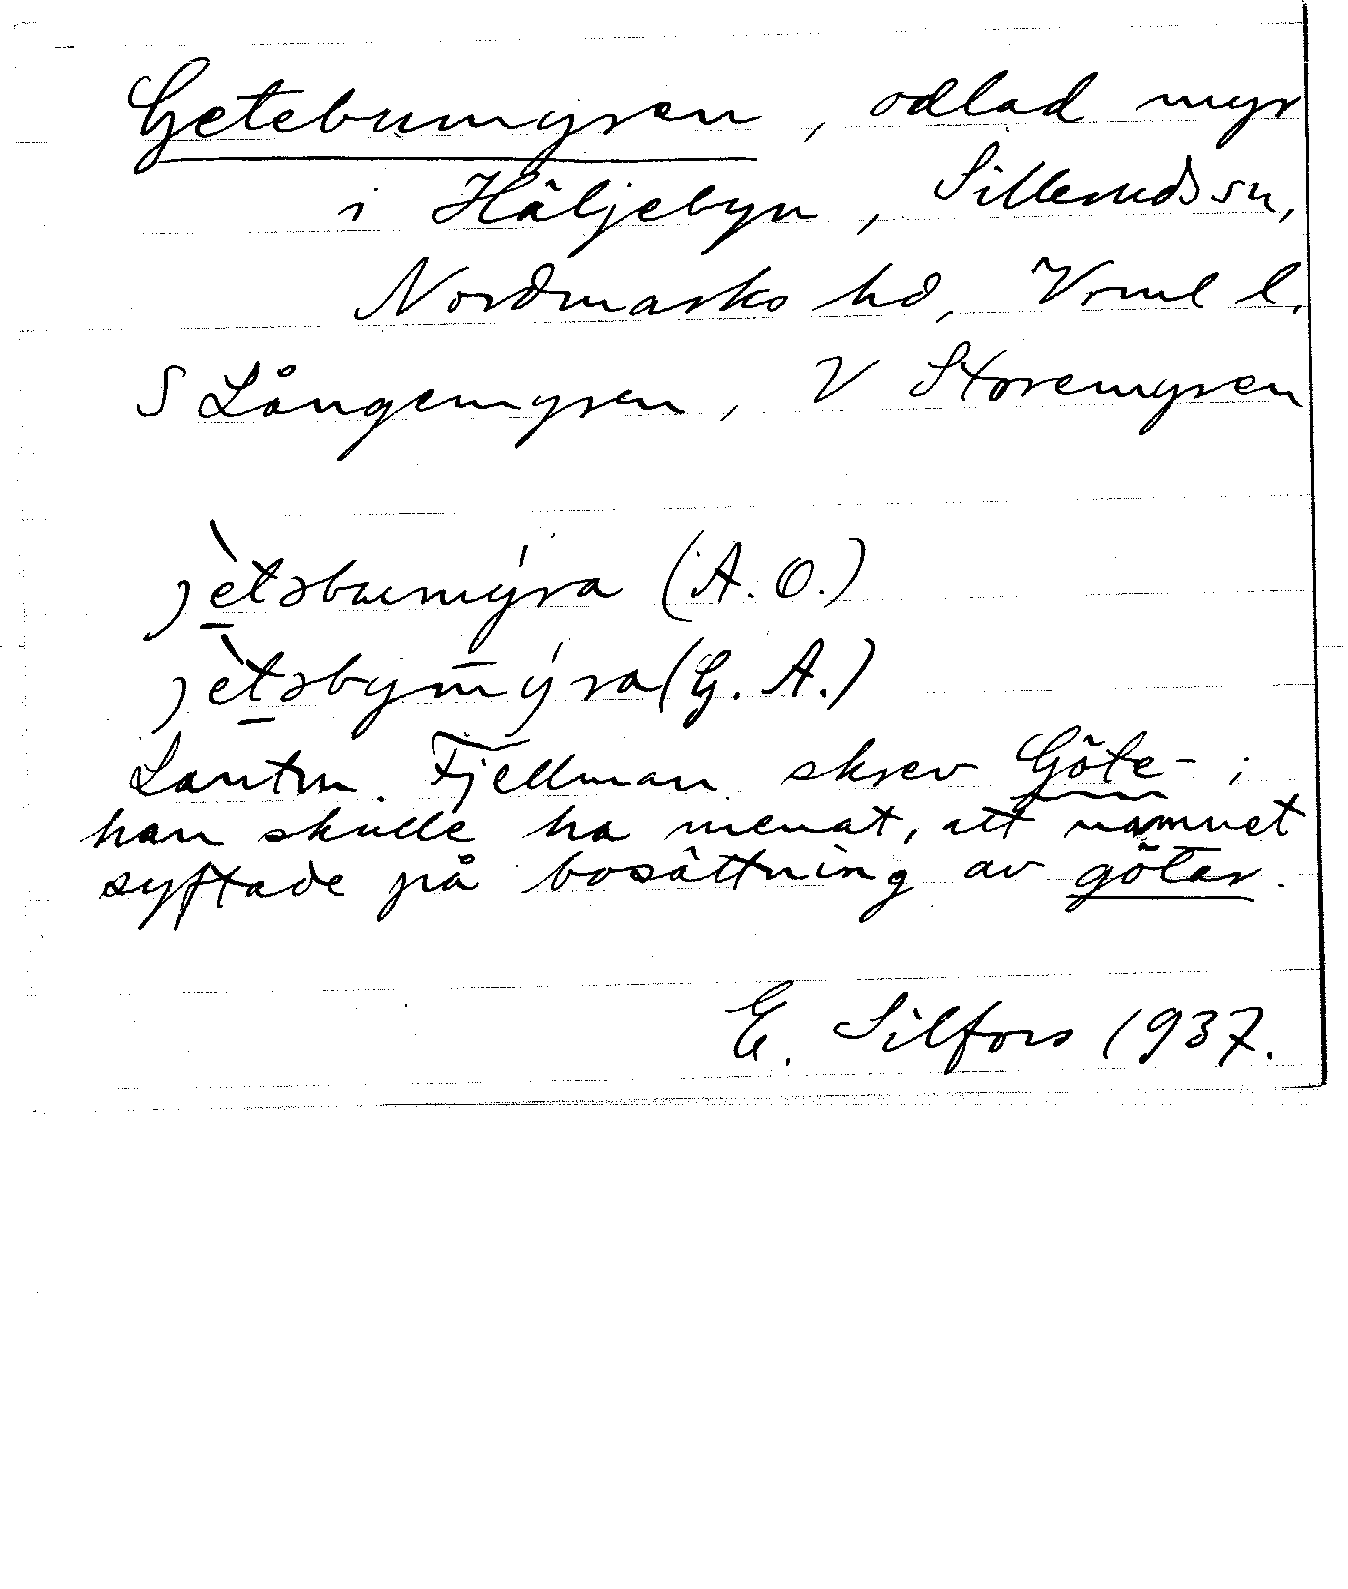 Getebumyren, odlad myr
i Häljebyn, Silleruds sn,
Nordmarks hd, Vrml l.
S Långemyren, V Storemyren
jètəbumýra (A. O.)
jètəbym̅ýra (G. A.)
Lantm. Fjellman skrev Göte- ;
han skulle ha menat, att namnet
syftade på bosättning av götar.
E. Silfors 1937.